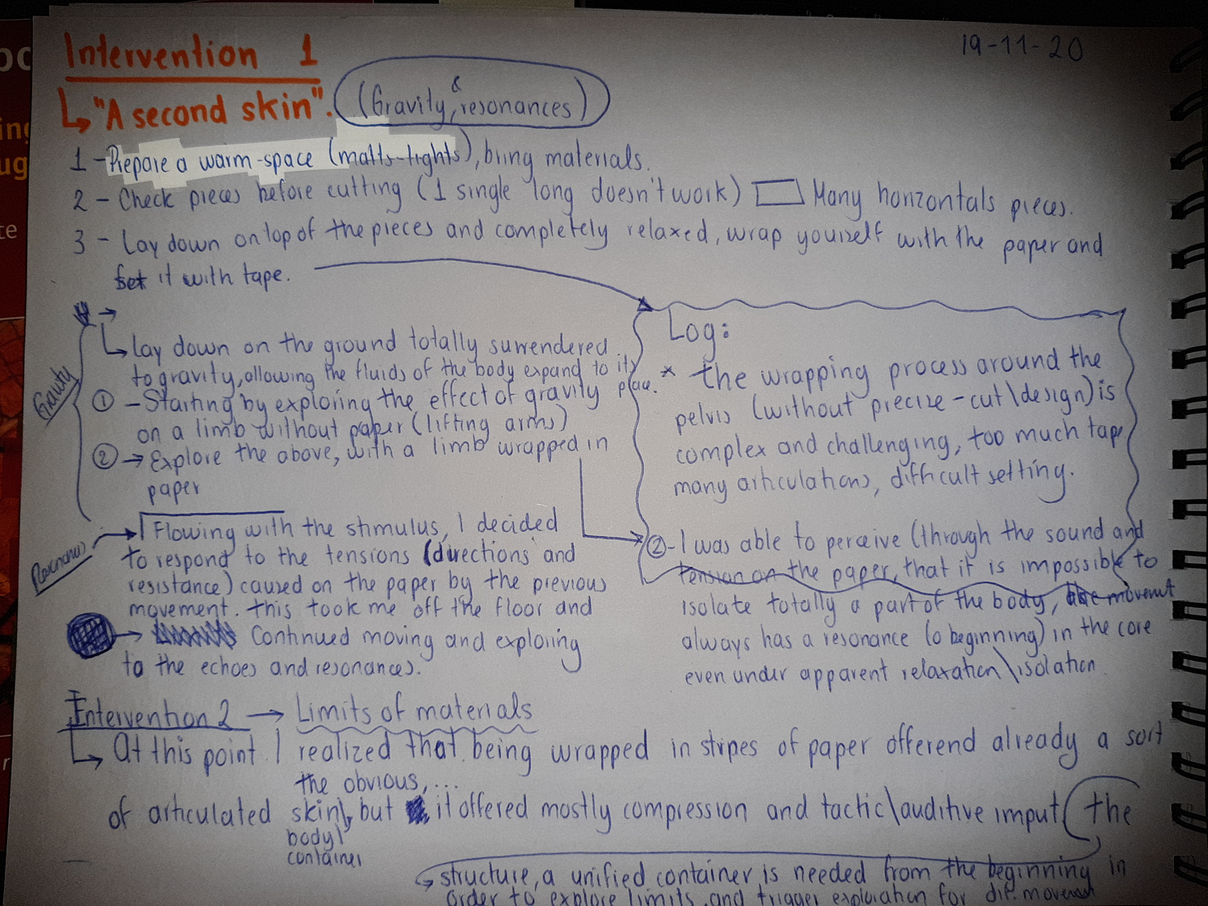 19-11-20
Intervention 1
↳ "A second skin". (Gravity & resonances)
1 - Prepare a warm-space (matts-lights), bring materials.
2 - Check pieces before cutting (1 single long doesn't work) ▭ Many horizontals pieces.
3 - Lay down on top of the pieces and completely relaxed, wrap yourself with the paper and
set it with tape.
Gravity
↳ lay down on the ground totally surrendered
to gravity, allowing the fluids of the body expand to it
place.
① - Starting by exploring the effect of gravity
on a limb without paper (lifting arms)
② → Explore the above, with a limb wrapped in
paper
Flowing with the stimulus, I decided
to respond to the tensions (directions and
resistance) caused on the paper by the previous
movement. this took me off the floor and
→ Continued moving and exploring
to the echoes and resonances.
Log:
* the wrapping process around the
pelvis (without precize-cut\design) is
complex and challenging, too much tape
many articulations, difficult setting.
② - I was able to perceive (through the sound and
tension on the paper, that it is impossible to
isolate totally a part of the body, movement
always has a resonance (a beginning) in the core
even under apparent relaxation\isolation
Intervention 2 → Limits of materials
↳ At this point I realized that being wrapped in stripes of paper offerend already a sort
the obvious,...
of articulated skin, but it offered mostly compression and tactic\auditive imput (the
body\
container
structure, a unified container is needed from the beginning in
order to explore limits and trigger exploration for dif. movement